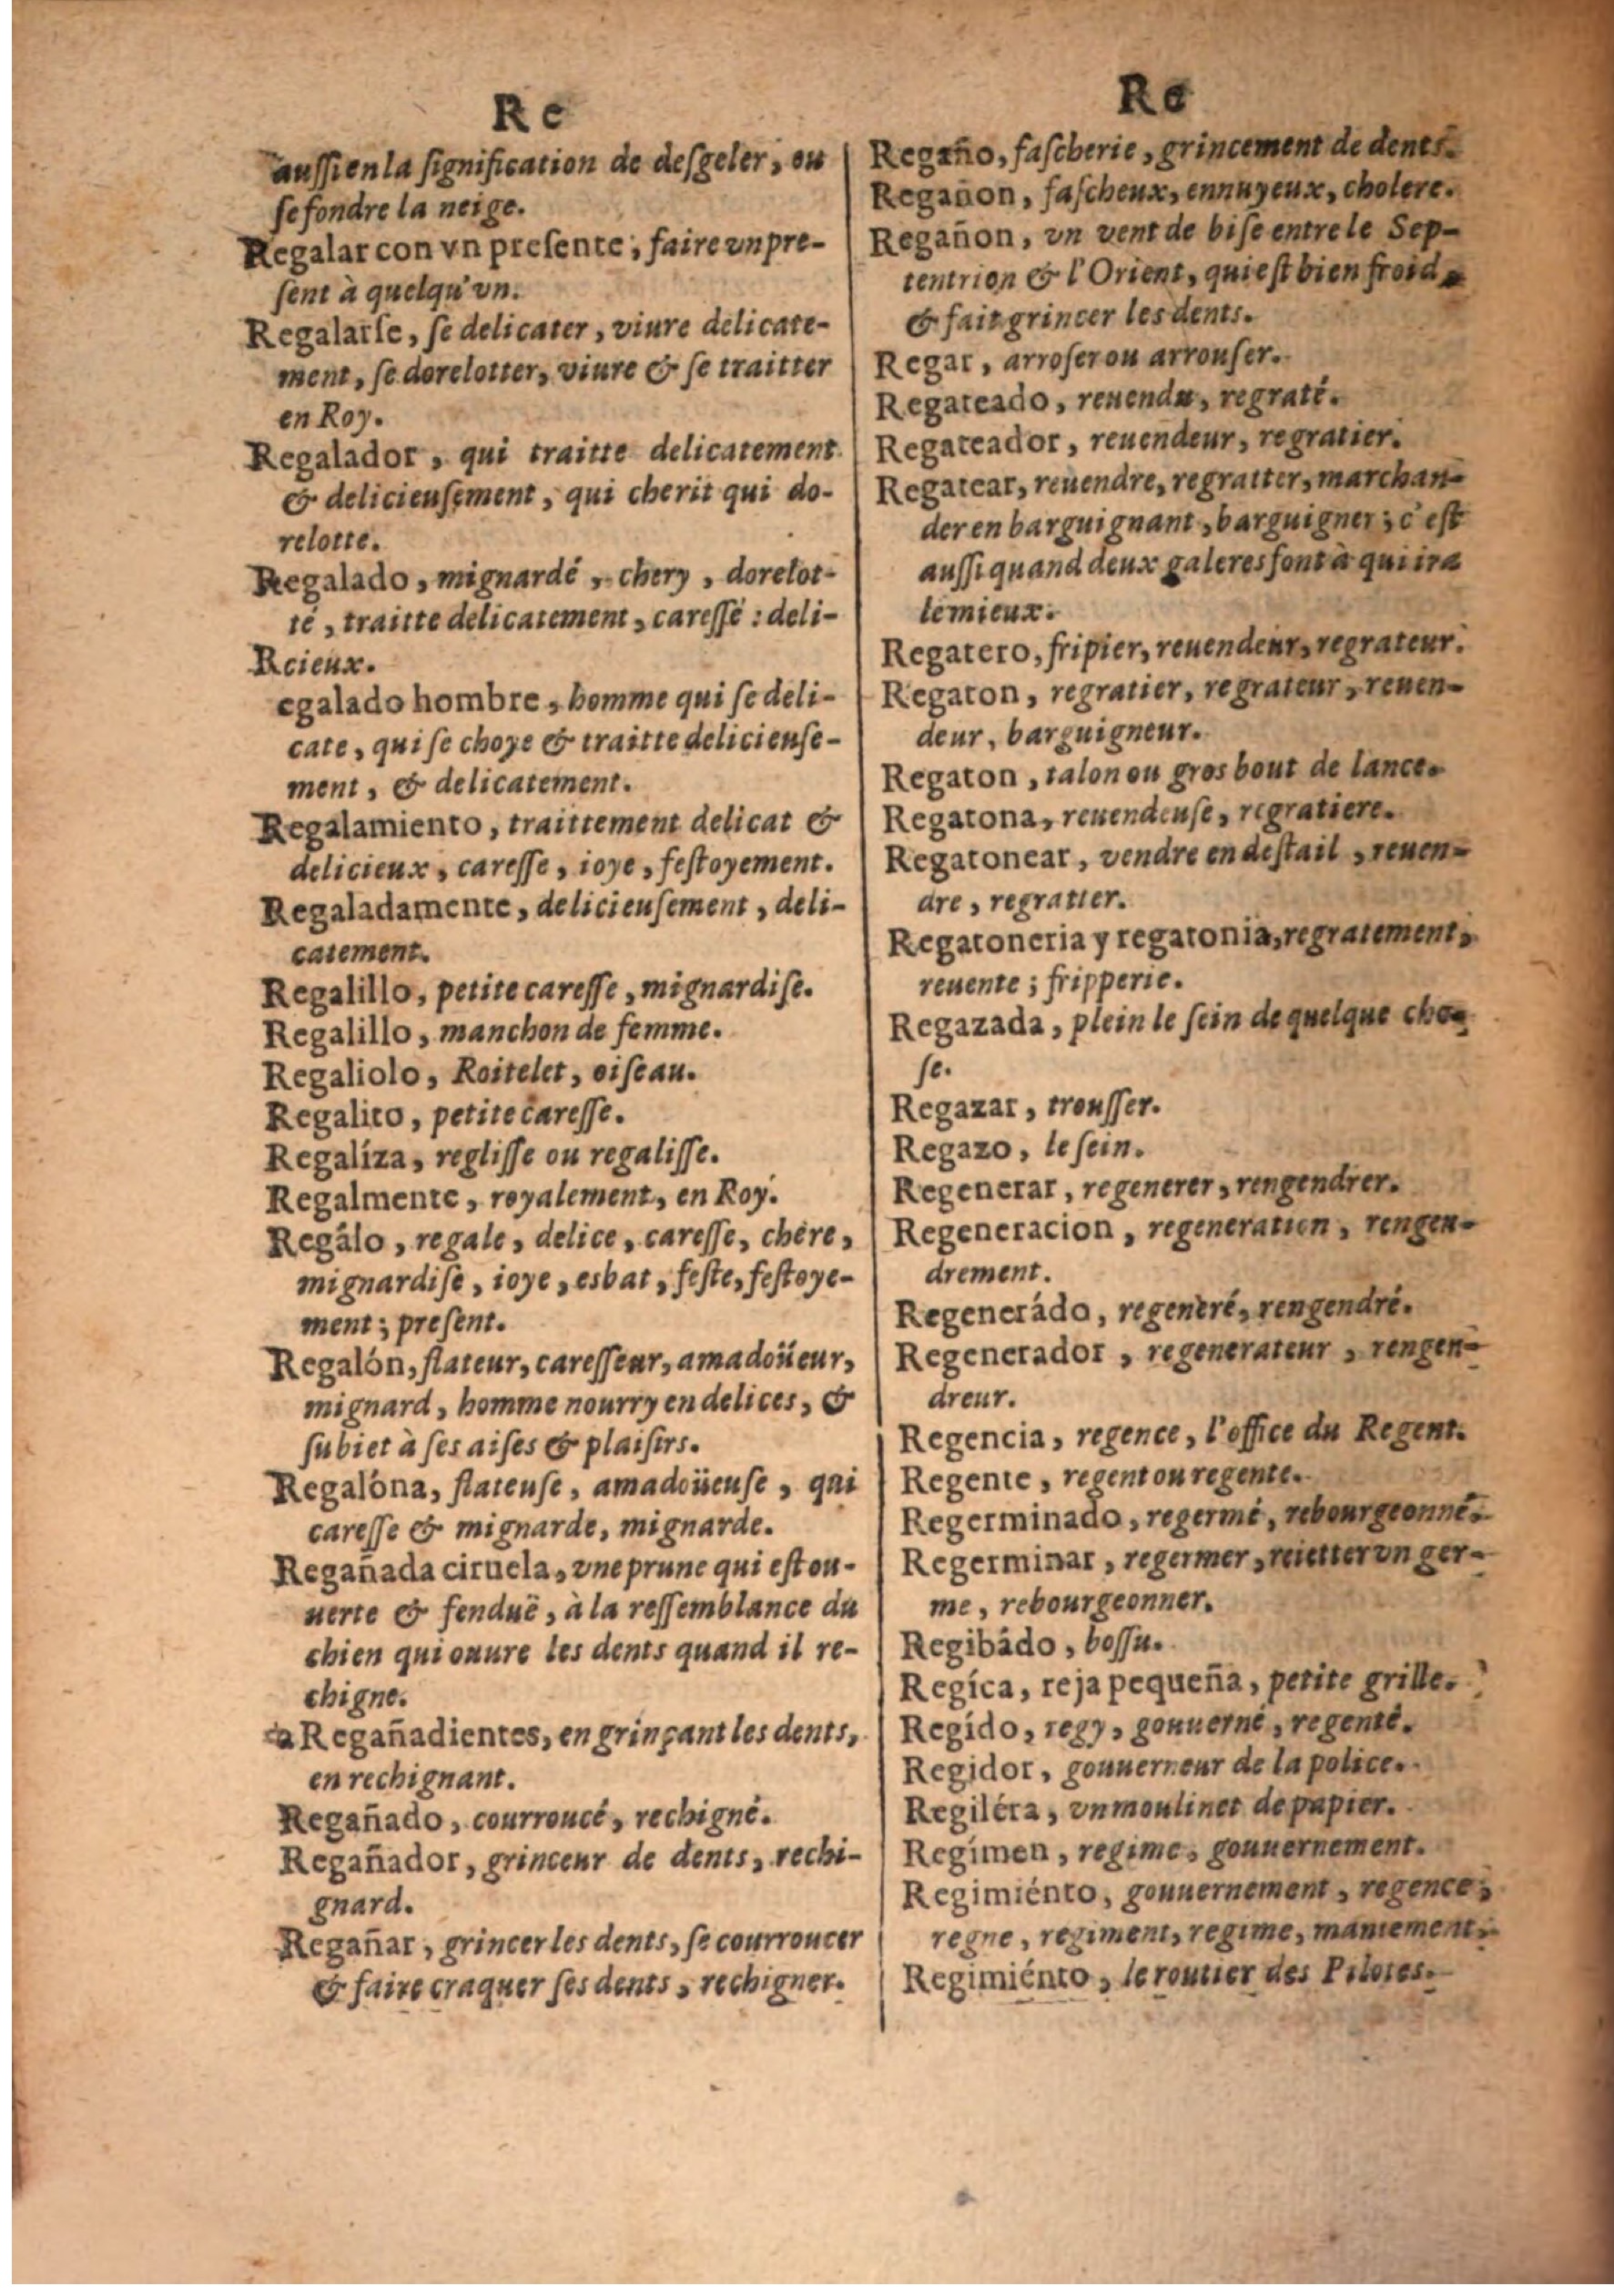 Re
auſſi en la ſignification de deſgeler, ou
ſe fondre la neige.
Regalar con vn preſente, faire vn pre-
ſent à quelqu'vn.
Regalarſe, ſe delicater, viure delicate-
ment, ſe dorelotter, viure & ſe traitter
en Roy.
Regalador, qui traitte delicatement
& delicieuſement, qui cherit qui do-
relotte.
Regalado, mignardé, chery, dorelot-
té, traitte delicatement, careſſé : deli-
Rcieux.
egalado hombre, homme qui ſe deli-
cate, qui ſe choye & traitte delicieuſe-
ment, & delicatement.
Regalamiento, traittement delicat &
delicieux, careſſe, ioye, feſtoyement.
Regaladamente, delicieuſement, deli-
catement.
Regalillo, petite careſſe, mignardiſe.
Regalillo, manchon de femme.
Regaliolo, Roitelet, oiſeau.
Regalito, petite careſſe.
Regalíza, regliſſe ou regaliſſe.
Regalmente, royalement, en Roy.
Regálo, regale, delice, careſſe, chere,
mignardiſe, ioye, esbat, feſte, feſtoye-
ment; preſent.
Regalón, flateur, careſſeur, amadoüeur,
mignard, homme nourry en delices, &
ſubiet à ſes aiſes & plaiſirs.
Regalóna, flateuſe, amadoüeuſe, qui
careſſe & mignarde, mignarde.
Regañada ciruela, vne prune qui eſt ou-
uerte & fenduë, à la reſſemblance du
chien qui ouure les dents quand il re-
chigne.
a Regañadientes, en grinçant les dents,
en rechignant.
Regañado, courroucé, rechigné.
Regañador, grinceur de dents, rechi-
gnard.
Regañar, grincer les dents, ſe courroucer
& faire craquer ſes dents, rechigner.
Re
Regaño, faſcherie, grincement de dents.
Regañon, faſcheux, ennuyeux, cholere.
Regañon, vn vent de biſe entre le Sep-
tentrion & l'Orient, qui eſt bien froid
& fait grincer les dents.
Regar, arroſer ou arrouſer.
Regateado, reuendu, regraté.
Regateador, reuendeur, regratier.
Regatear, reuendre, regratter, marchan-
der en barguignant, barguigner; c'eſt
auſſi quand deux galeres font à qui ira
le mieux.
Regatero, fripier, reuendeur, regrateur.
Regaton, regratier, regrateur, reuen-
deur, barguigneur.
Regaton, talon ou gros bout de lance.
Regatona, reuendeuſe, regratiere.
Regatonear, vendre en deſtail, reuen-
dre, regratter.
Regatoneria y regatonia, regratement,
reuente; fripperie.
Regazada, plein le ſein de quelque cho-
ſe.
Regazar, trouſſer.
Regazo, le ſein.
Regenerar, regenerer, rengendrer.
Regeneracion, regeneration, rengen-
drement.
Regenerádo, regeneré, rengendré.
Regenerador, regenerateur, rengen-
dreur.
Regencia, regence, l'office du Regent.
Regente, regent ou regente.
Regerminado, regermé, rebourgeonné.
Regerminar, regermer, reietter vn ger-
me, rebourgeonner.
Regibádo, boſſu.
Regíca, reja pequeña, petite grille.
Regído, regy, gouuerné, regenté.
Regidor, gouuerneur de la police.
Regiléra, vn moulinet de papier.
Regímen, regime, gouuernement.
Regimiénto, gouuernement, regence,
regne, regiment, regime, maniement.
Regimiénto, le routier des Pilotes.